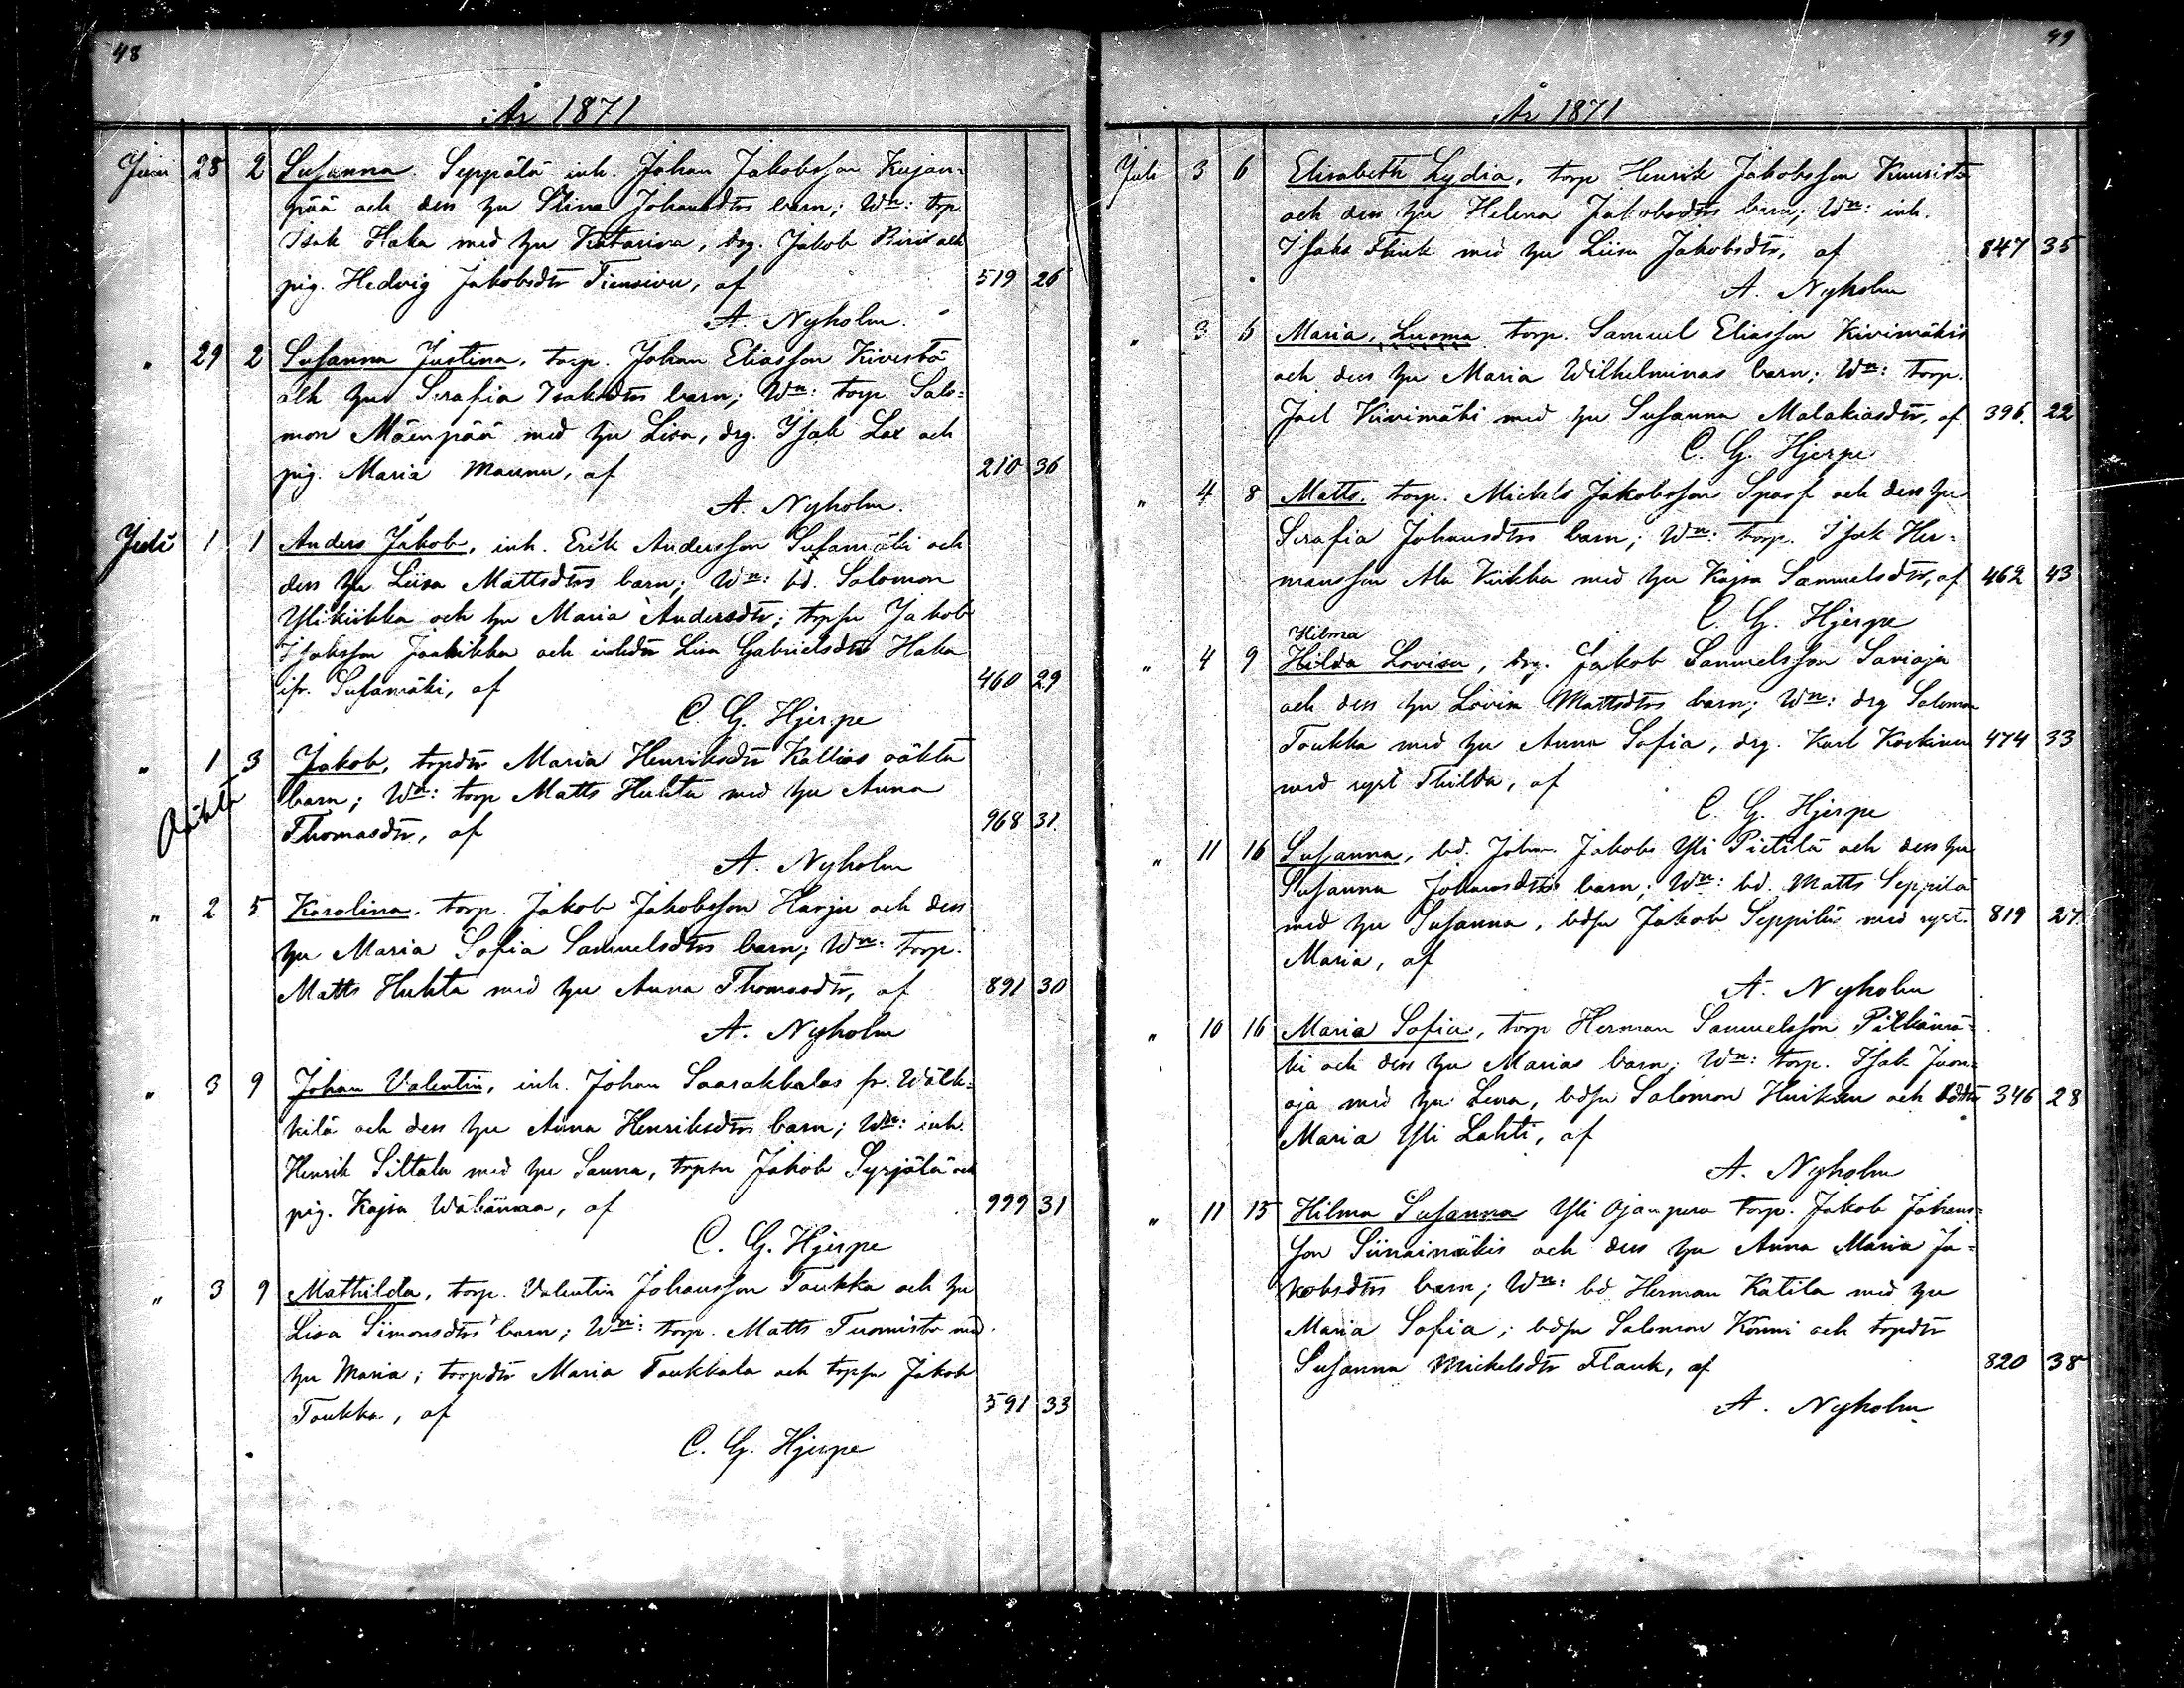 48
År 1871
Juni 28 2 Susanna. Seppälä inh. Johan Jakobsson Kujan=
pää och dess hu Stina Johansdtrs barn; Wn: torp.
Isak Haka med hu Katarina, drg. Jakob och
pig. Hedvig Jakobsdtr Tiensivu, af 519 26
A. Nyholm.
" 29 2 Susanna Justina, torp. Johan Eliasson Kivistö
och hu Serafia Isaksdtrs barn; Wn: torp. Salo=
mon Mäenpää med hu Lisa, drg. Isak Lax och
pig. Maria Maunu, af 210 36
A. Nyholm.
Juli 1 1 Anders Jakob, inh. Erik Andersson Susamäki och
dess hu Liisa Mattsdtrs barn; Wn: bd. Salomon
Ylikiikka och hu Maria Andersdtr; torpsn Jakob
Isaksson Jaakikka och inhdtr Lisa Gabrielsdtr Haka
ifr. Susamäki, af 460 29
C. G. Hjerpe
" 1 3 Jakob, torpdtr Maria Henriksdtr Kallios oäkta
barn; Wn: torp Matts Huhta med hu Anna
Oäkta
Thomasdtr, af 968 31.
A. Nyholm
" 2 5 Karolina, torp. Jakob Jakobsson Harju och dess
hu Maria Sofia Samuelsdtrs barn; Wn: torp.
Matts Huhta med hu Anna Thomasdtr, af 891 30
A. Nyholm
" 3 9 Johan Valentin, inh. Johan Saarakkalas fr. Wälk=
kilä och dess hu Anna Henriksdtrs barn; Wn: inh.
Henrik Siltala med hu Sanna, torpsn Jakob Syrjälä och
pig. Kajsa, af 999 31
C. G. Hjerpe
" 3 9 Mathilda, torp. Valentin Johansson Toukka och hu
Lisa Simonsdtrs barn; Wn: torp. Matts Tuomisto med
hu Maria; torpdtr Maria Toukkala och torpsn Jakob
Toukka, af 591 33
C. G. Hjerpe
49
År 1871
Juli 3 6 Elisabeth Lydia, torp Henrik Jakobsson Kuusisto
och dess hu Helena Jakobsdtrs barn; Wn: inh.
Isaks Flink med hu Liisa Jakobsdtr, af 847 35
A. Nyholm
" 3 6 Maria, Luoma torp. Samuel Eliasson Kivimäkis
och dess hu Maria Wilhelminas barn; Wn: torp.
Joel Kivimäki med hu Susanna Malakiasdtr, af 396. 22
C. G. Hjerpe
" 4 8 Matts. torp. Mickels Jakobsson Sparf och dess hu
Serafia Johansdtrs barn; Wn: torp. Isak Her=
mansson Ala Kiikka med hu Kajsa Samuelsdtr, af 462 43
C. G. Hjerpe
Hilma
" 4 9 Hilda Lovisa, drg. Jakob Samuelsson Savioja
och dess hu Lovisa Mattsdtrs barn; Wn: drg Salomon
Toukka med hu Anna Sofia, drg. Karl Koskinen 474 33
med syst Thilda, af
C. G. Hjerpe
" 11 16 Susanna, bd. Johan Jakobs Yli Pietilä och dess hu
Susanna Johansdtrs barn; Wn: bd. Matts Seppilä
med hu Susanna, bdsn Jakob Seppilä med syst. 819 27.
Maria, af
A. Nyholm
" 10 16 Maria Sofia, torp Herman Samuelsson Pitkämä=
ki och dess hu Marias barn; Wn: torp. Isak Juon=
oja med hu Lena, bdsn Salomon och bddtr 346 28
Maria Yli Lahti, af
A. Nyholm
" 11 15 Hilma Susanna Yli Ojanpera torp. Jakob Johans=
son Siinainäkis och dess hu Anna Maria Ja=
kobsdtrs barn; Wn: bd Herman Katila med hu
Maria Sofia; bdsn Salomon Könni och torpdtr
Susanna Mickelsdtr Flank, af 820 38
A. Nyholm